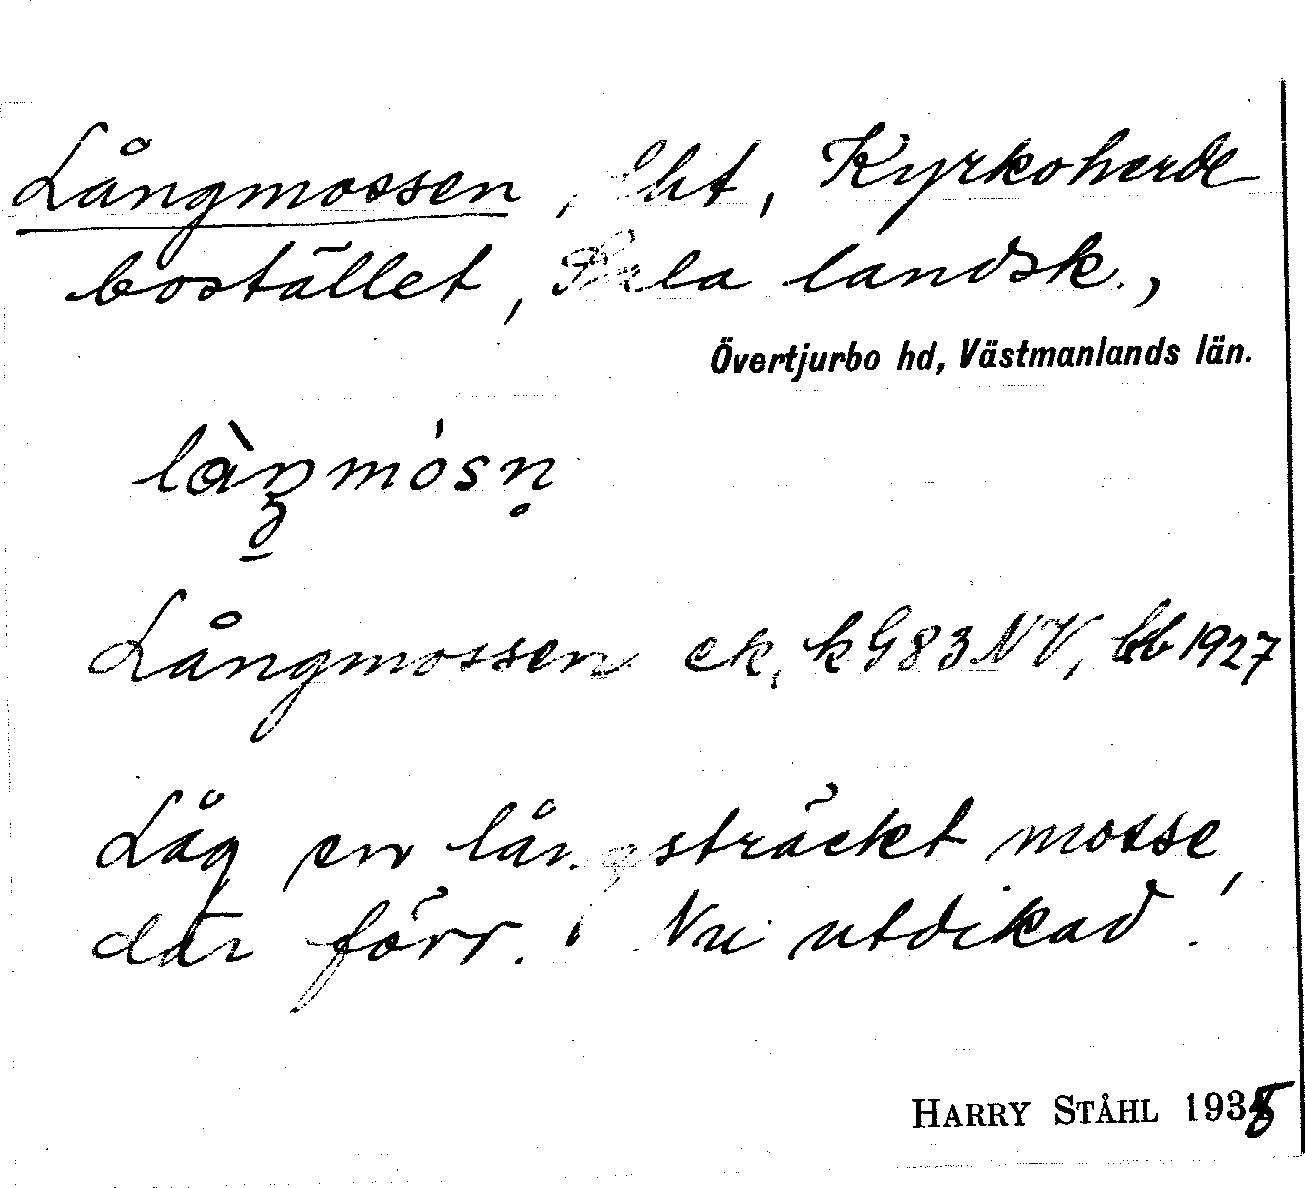 Långmossen, lht, Kyrkoherde
bostället, Sala landsk.,
Övertjurbo hd, Västmanlands län.
Långmossen ek, kG83NV, bb 1927
Låg en långsträckt mosse,
där förr. Nu utdikad.
HARRY STÅHL 1935